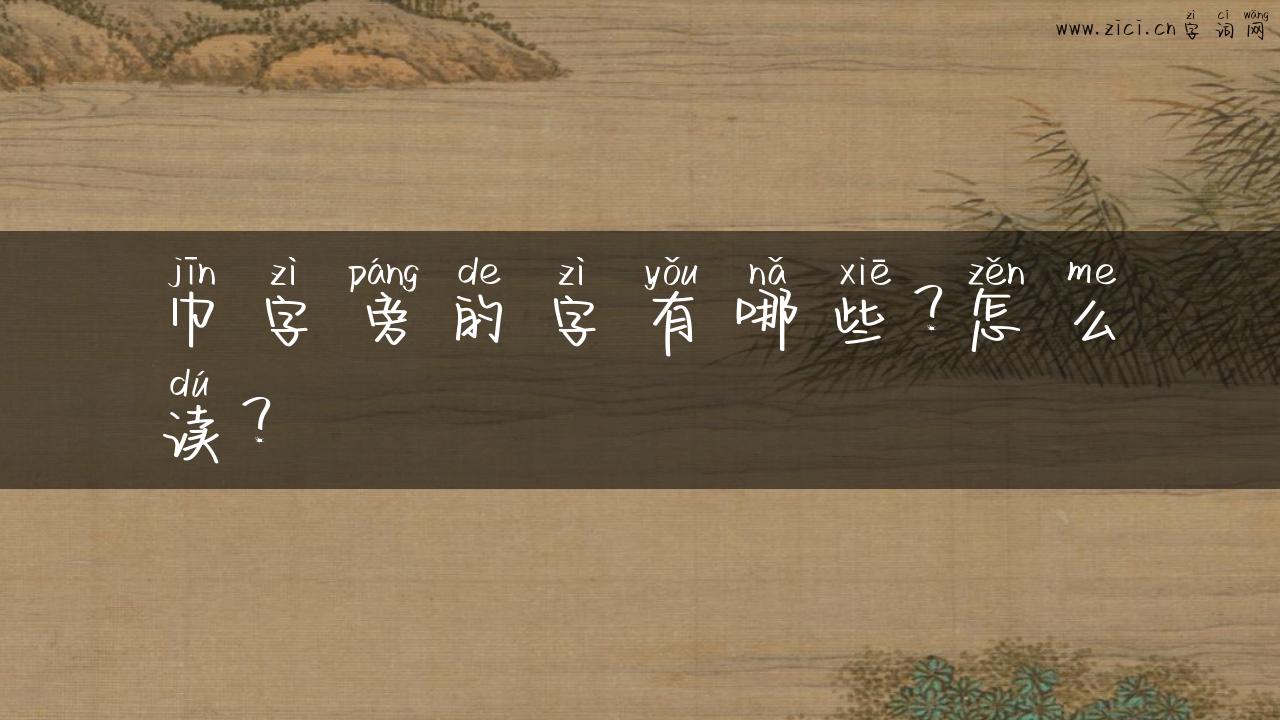 zì cí wǎng
www.zici.cn 字词网
jīn zì páng de zì yǒu nǎ xiē zěn me
巾字旁的字有哪些？怎么
dú
读？